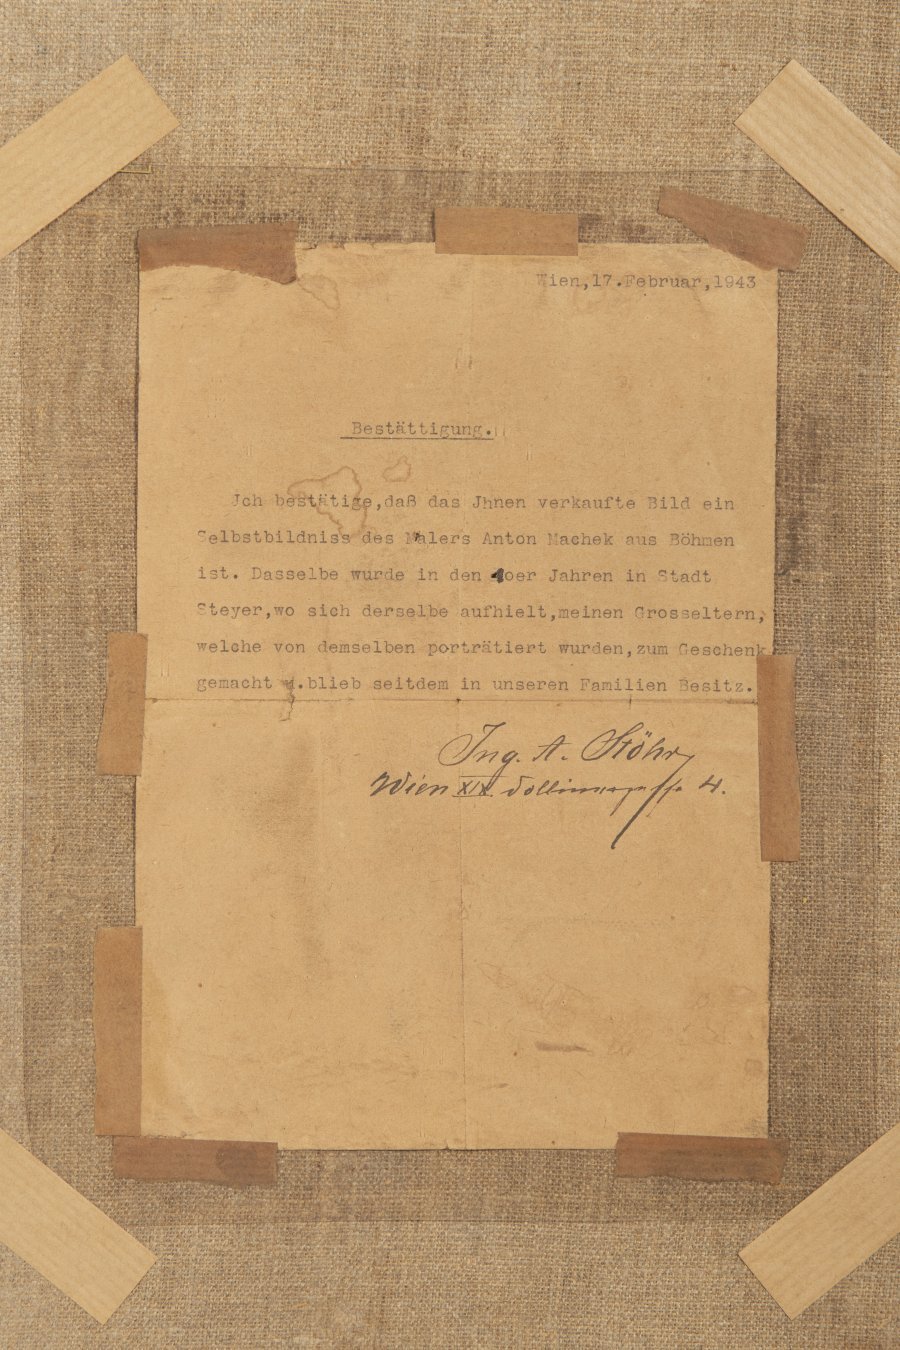 Wien,17.Februar,1943
Bestättigung.
Jch bestätige,daß das Jhnen verkaufte Bild ein
Selbstbildniss des Malers Anton Machek aus Böhmen
ist. Dasselbe wurde in den Jahren in Stadt
Steyer,wo sich derselbe aufhielt,meinen Grosseltern,
welche von demselben porträtiert wurden,zum Geschenk
gemacht u.blieb seitdem in unseren Familien Besitz.
Ing. A. Stöhr
Wien XIX. 4.